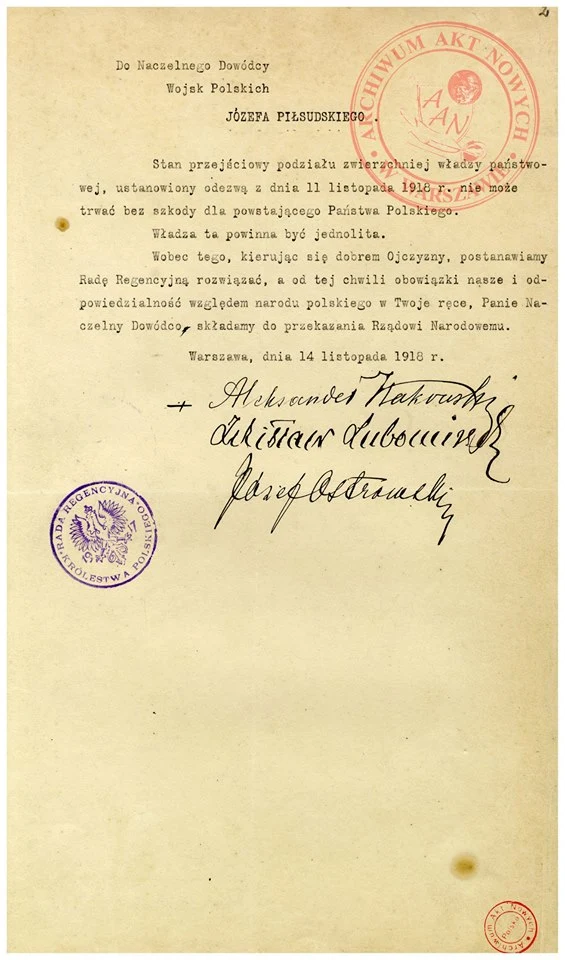 2
Do Naczelnego Dowódcy
Wojsk Polskich
JÓZEFA PIŁSUDSKIEGO.
ARCHIWUM AKT NOWYCH
W WARSZAWIE
AAN
Stan przejściowy podziału zwierzchniej władzy państwo-
wej, ustanowiony odezwą z dnia 11 listopada 1918 r. nie może
trwać bez szkody dla powstającego Państwa Polskiego.
Władza ta powinna być jednolita.
Wobec tego, kierując się dobrem Ojczyzny, postanawiamy
Radę Regencyjną rozwiązać, a od tej chwili obowiązki nasze i od-
powiedzialność względem narodu polskiego w Twoje ręce, Panie Na-
czelny Dowódco, składamy do przekazania Rządowi Narodowemu.
Warszawa, dnia 14 listopada 1918 r.
+ Aleksander Kakowski
Zdzisław Lubomirski
Józef Ostrowski
RADA REGENCYJNA
KRÓLESTWA POLSKIEGO
1917
Archiwum Akt Nowych
Polska